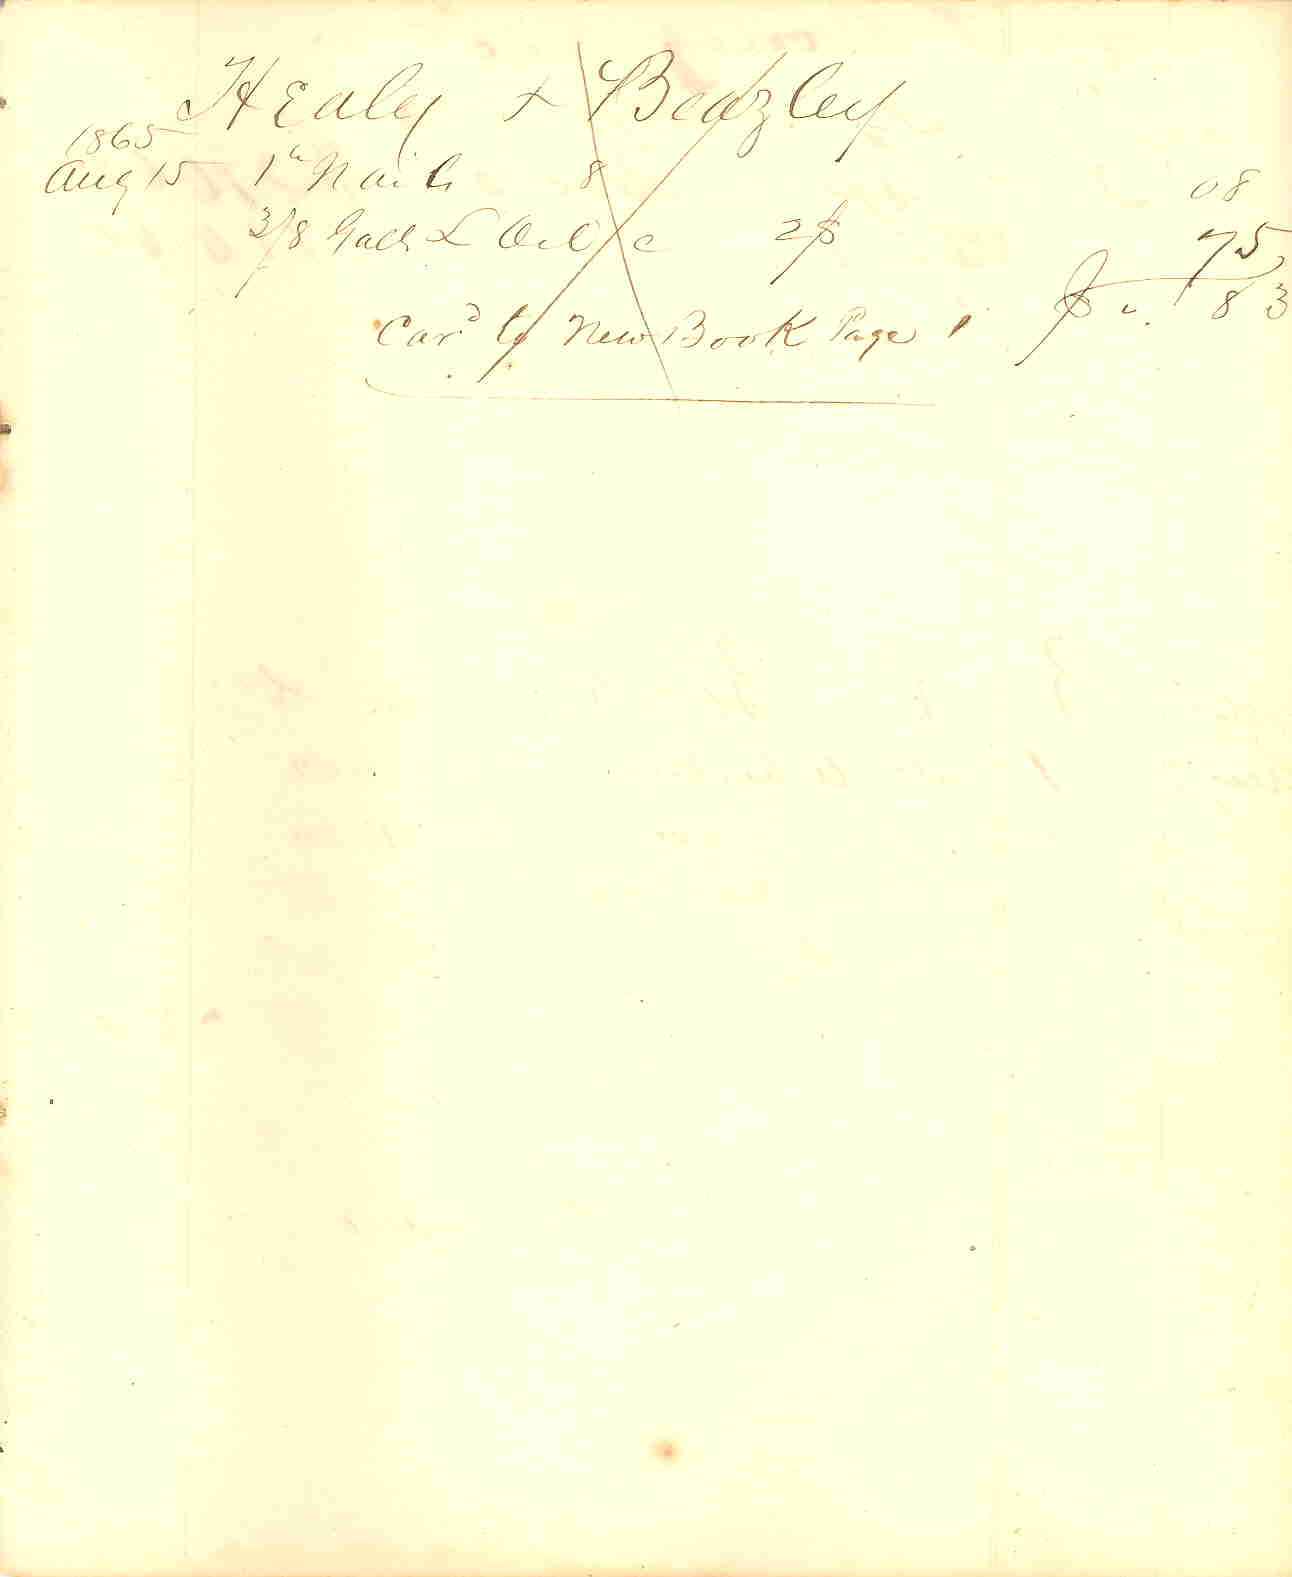 Healy & Beazley
1865
Aug 15 1 lb Nails 8 08
3/8 Galls L Oil c 2$ 75
Card to New Book Page 1 $ 83